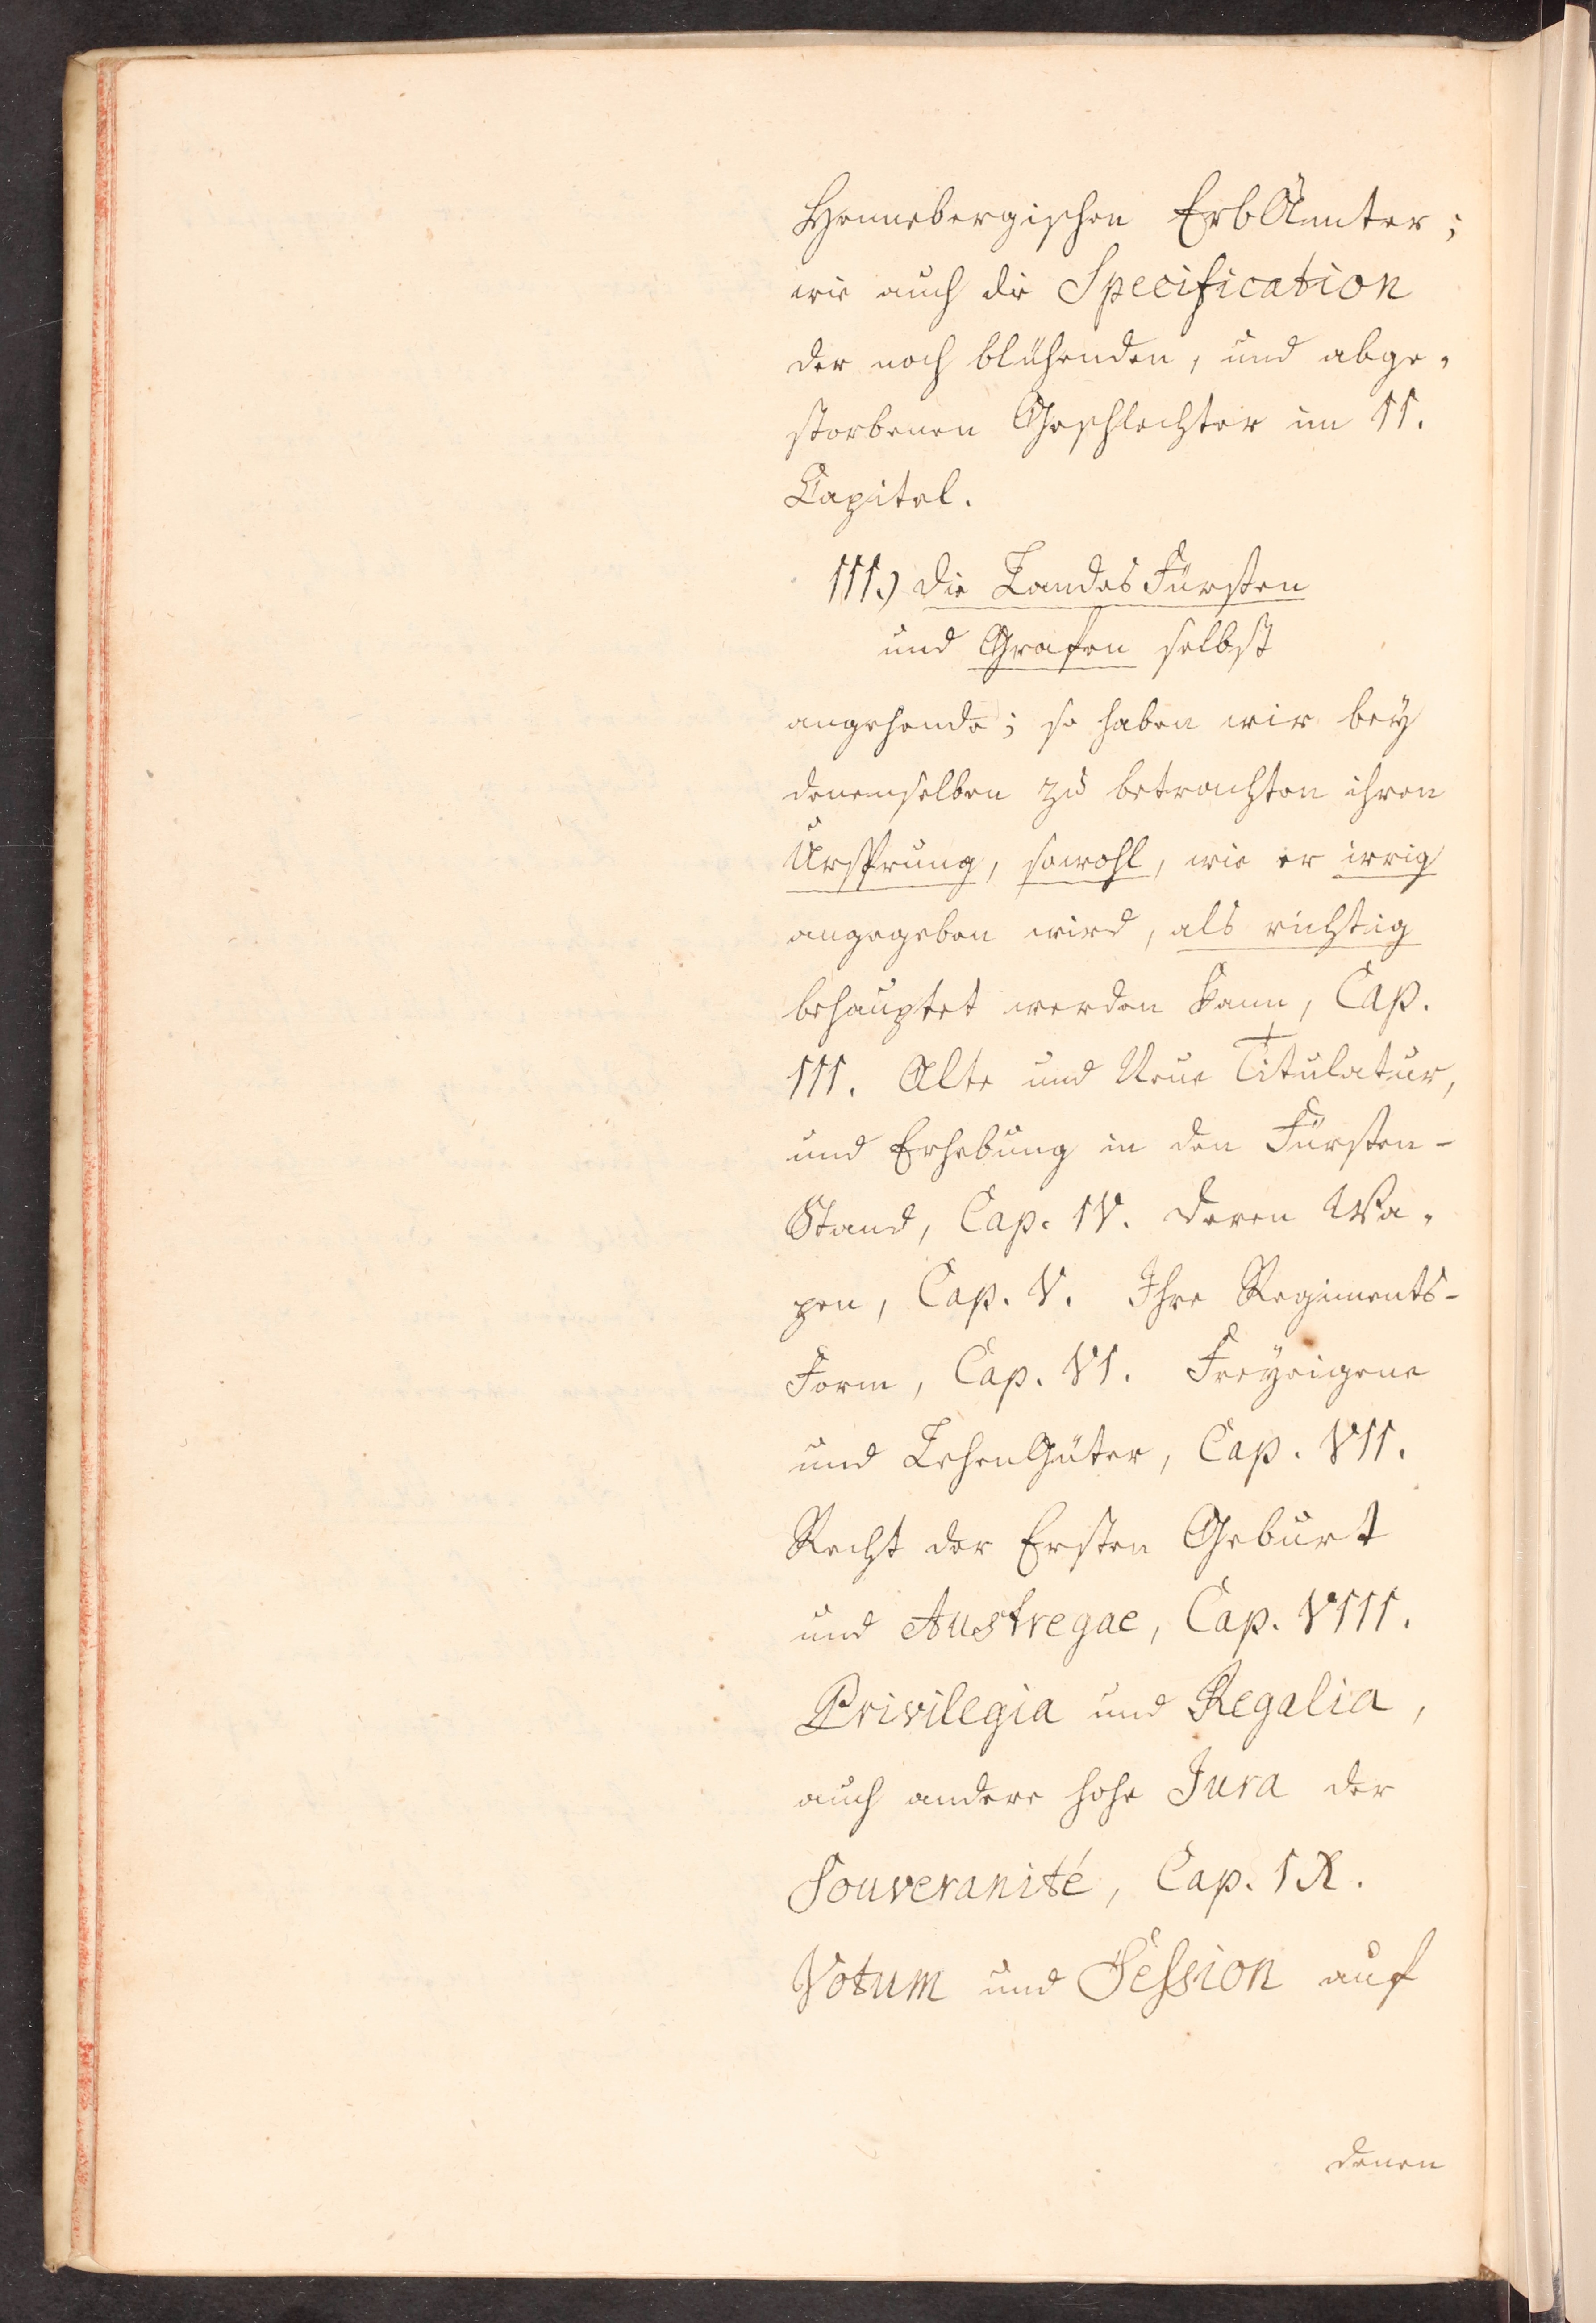 Hennebergischen ErbÄmter;
wie auch die Specification
der noch blühenden, und abge-
storbenen Geschlechter im II.
Capitel.
III.) Die LandesFürsten
und Grafen selbst
angehende; so haben wir bey
denenselben zu betrachten ihren
Ursprung, sowohl, wie er irrig
angegeben wird, als richtig
behauptet werden kann, Cap.
III. Alte und Neue Titulatur,
und Erhebung in den Fürsten-
Stand, Cap. IV. Deren Wa-
pen, Cap. V. Ihre Regiments-
Form, Cap. VI. Freyeigene
und LehenGüter, Cap. VII.
Recht der Ersten Geburt
und Austregae, Cap. VIII.
Privilegia und Regalia,
auch andere hohe Jura der
Souveranité, Cap. IX.
Votum und Session auf
denen